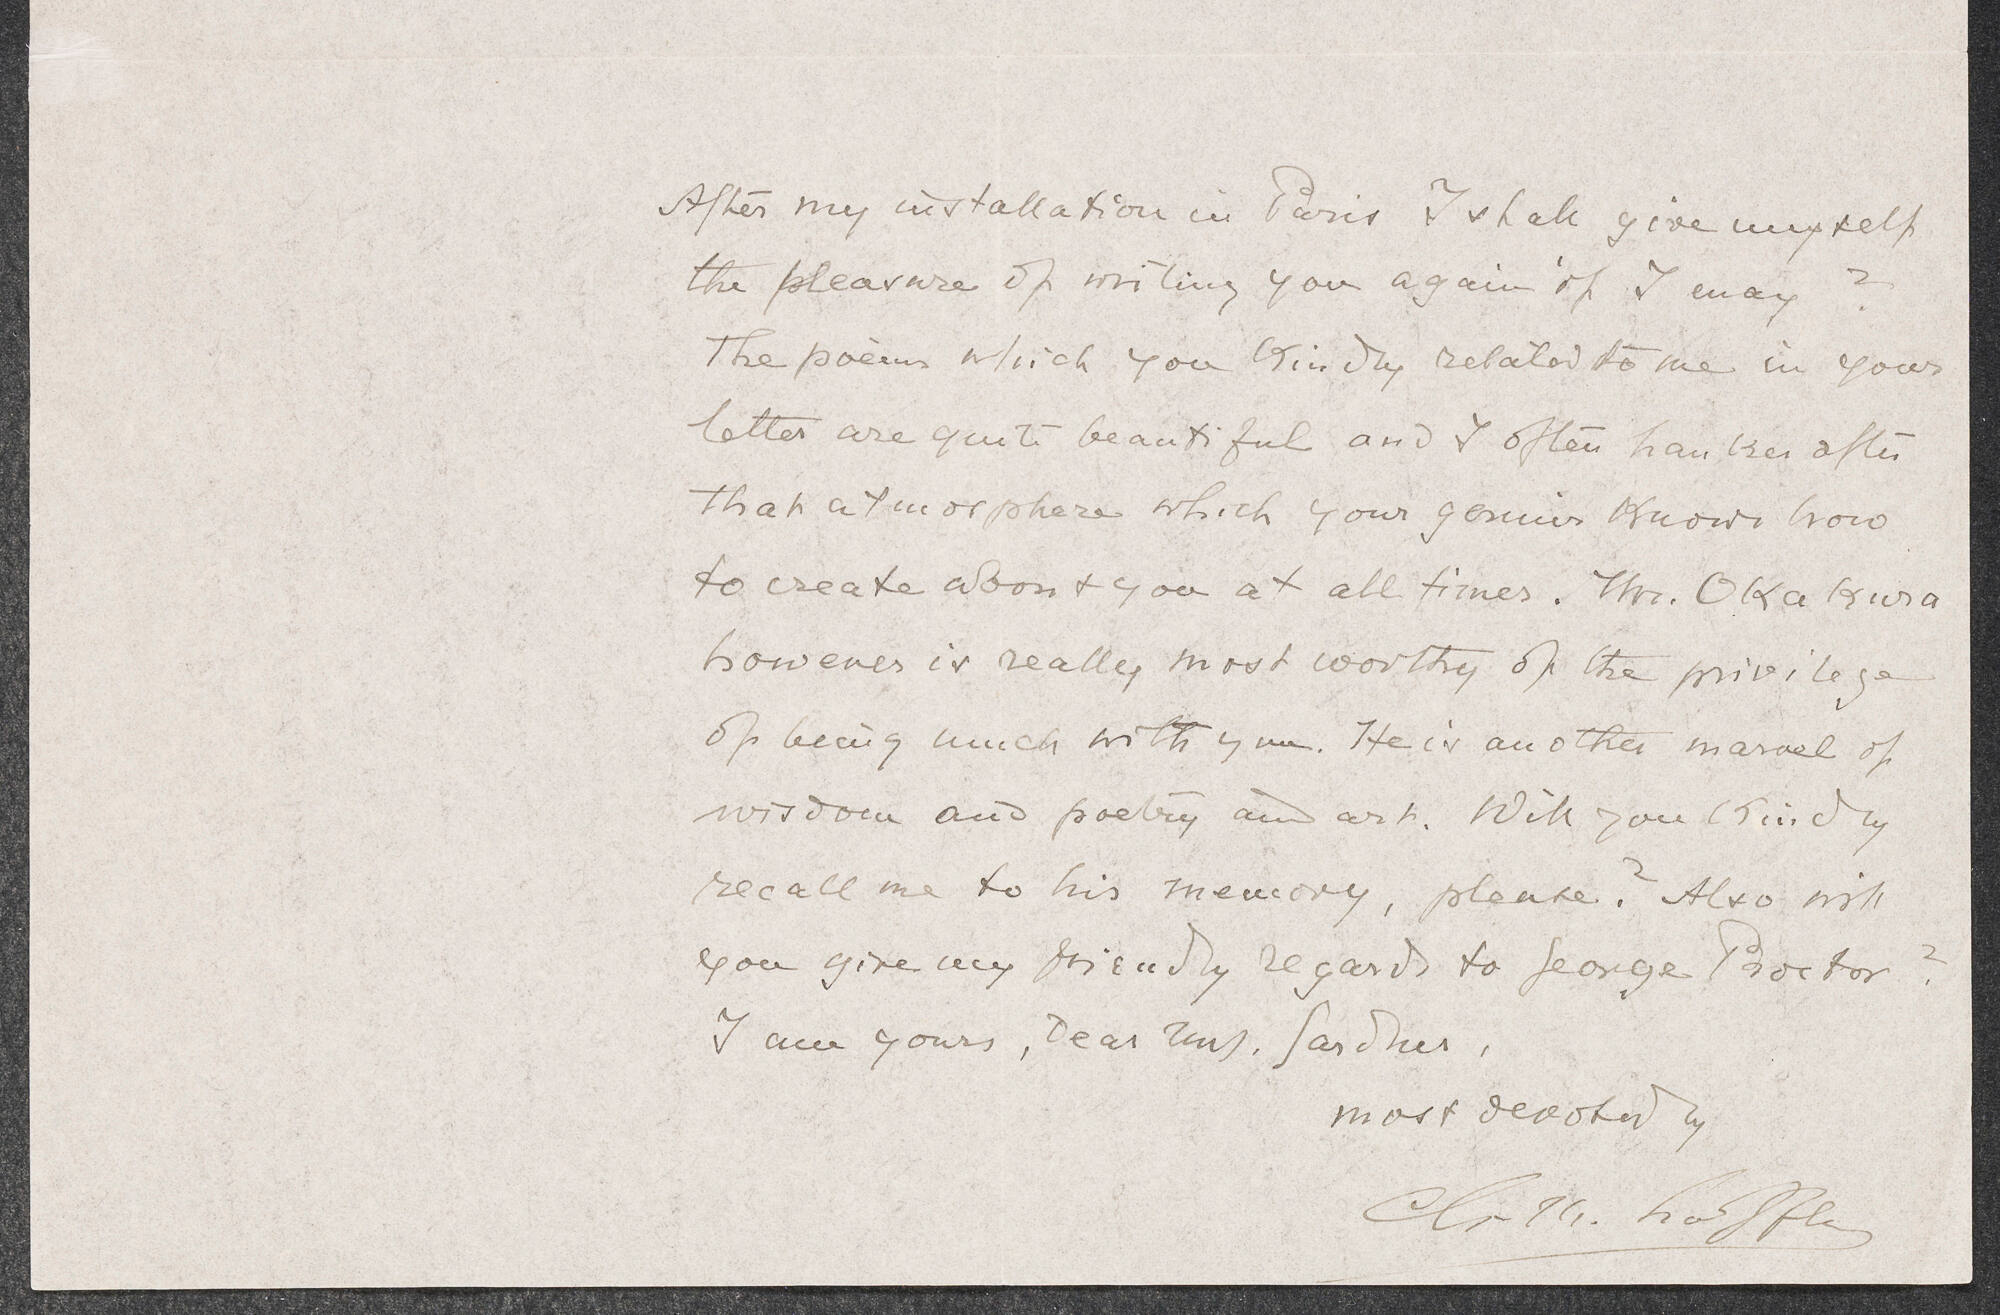 After my installation in Paris I shall give myself
the pleasure of writing you again if I may?
The poems which you kindly related to me in your
letter are quite beautiful and I often hanker after
that atmosphere which your genius knows how
to create about you at all times. Mr. Okakura
however is really most worthy of the privilege
of being much with you. He is another marvel of
wisdom and poetry and art. Will you kindly
recall me to his memory, please? Also will
you give my friendly regards to George Proctor?
I am yours, dear Mrs. Gardner,
most devotedly
Ch. M. Loeffler